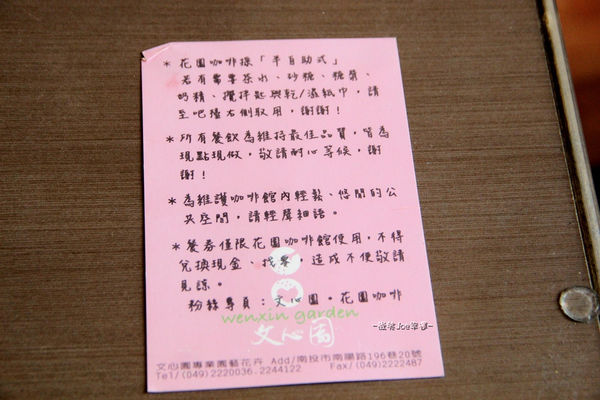 * 花園咖啡採「半自助式」
若有需要茶水、砂糖、糖漿、
奶精、攪拌匙與乾/濕紙巾,請
至吧檯右側取用,謝謝!
* 所有餐飲為維持最佳品質,皆為
現點現做,敬請耐心等候,謝
謝!
* 為維護咖啡館內輕鬆、悠閒的公
共空間,請輕聲細語。
* 餐券僅限花園咖啡館使用,不得
兌換現金、找零,造成不便敬請
見諒。
粉絲專頁:文心園。花園咖啡
wenxin garden
文心園
文心園專業園藝花卉 Add/南投市南陽路196巷20號
Tel/(049)2220036.2244122 Fax/(049)2222487